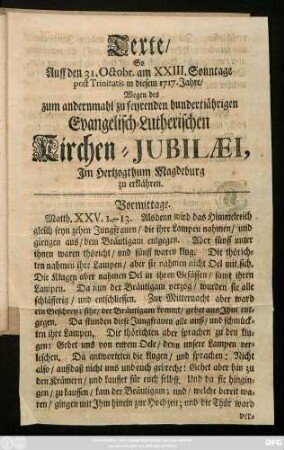 Texte/
So
Auff den 31. Octobr. am XXIII. Sonntage
post Trinitatis in diesem 1717. Jahre/
Wegen des
zum andernmahl zu feyrenden hundertjährigen
Evangelisch-Lutherischen
Kirchen-JUBILÆI,
Im Hertzogthum Magdeburg
zu erklähren.
Vormittage.
Matth. XXV. 1.-13. Alsdenn wird das Himmelreich
gleich seyn zehen Jungfrauen / die ihre Lampen nahmen / und
giengen aus/ dem Bräutigam entgegen. Aber fünff unter
ihnen waren thöricht/ und fünff waren klug. Die thörich-
ten nahmen ihre Lampen/ aber sie nahmen nicht Oel mit sich.
Die Klugen aber nahmen Oel in ihren Gefässen/ samt ihren
Lampen. Da nun der Bräutigam verzog/ wurden sie alle
schläfferig/ und entschlieffen. Zur Mitternacht aber ward
ein Geschrey: siehe/ der Bräutigam kommt/ gehet aus ihm ent-
gegen. Da stunden diese Jungfrauen alle auff/ und schmück-
ten ihre Lampen. Die thörichten aber sprachen zu den klu-
gen: Gebet uns von eurem Oele/ denn unsere Lampen ver-
leschen. Da antworteten die klugen/ und sprachen: Nicht
also/ auffdaß nicht uns und euch gebreche: Gehet aber hin zu
den Krämern/ und kauffet für euch selbst. Und da sie hingin-
gen/ zu kauffen/ kam der Bräutigam; und/ welche bereit wa-
ren/ gingen mit ihm hinein zur Hochzeit; und die Thür ward
ver-